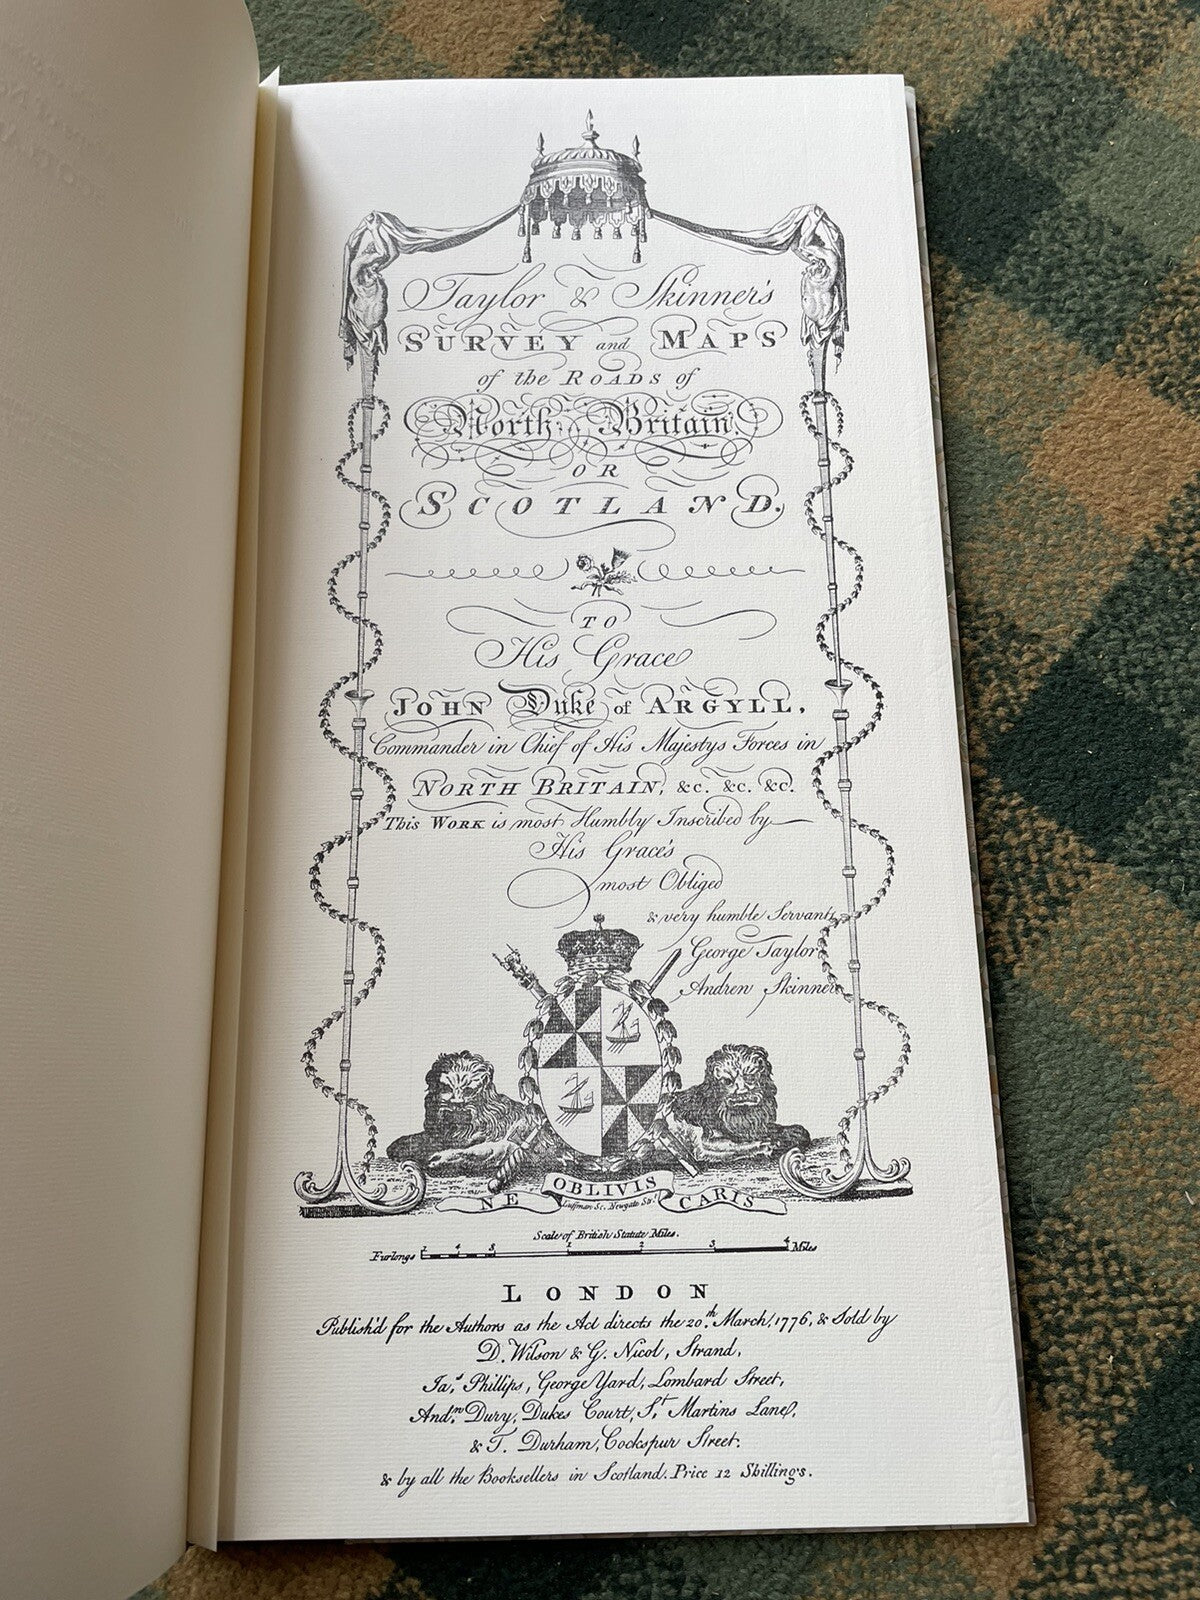 Taylor & Skinner's
SURVEY and MAPS
of the ROADS of
North Britain,
OR
SCOTLAND.
TO
His Grace
JOHN Duke of ARGYLL,
Commander in Chief of His Majestys Forces in
NORTH BRITAIN, &c. &c. &c.
This WORK is most Humbly Inscribed by
His Grace's
most Obliged
& very humble Servants
George Taylor
Andrew Skinner
NE OBLIVIS CARIS
Luffman Sc. Newgate Str.t
Scale of British Statute Miles.
Furlongs 4 8 1 2 3 4 Miles
LONDON
Publish'd for the Authors as the Act directs the 20th. March, 1776, & Sold by
D. Wilson & G. Nicol, Strand,
Ja.s Phillips, George Yard, Lombard Street,
And.w Dury, Dukes Court, S.t Martins Lane,
& T. Durham, Cockspur Street.
& by all the Booksellers in Scotland. Price 12 Shillings.